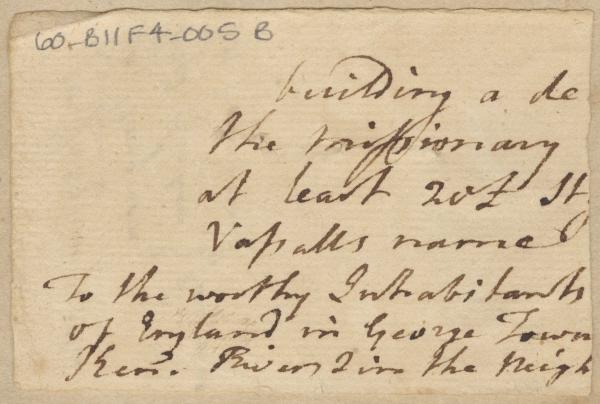 60-B11F4-005 B
building a de
the missionary
at least 20£ St
Vassalls name
To the worthy Inhabitants
of England in George Town
Ken. Rivers & in the Neigh